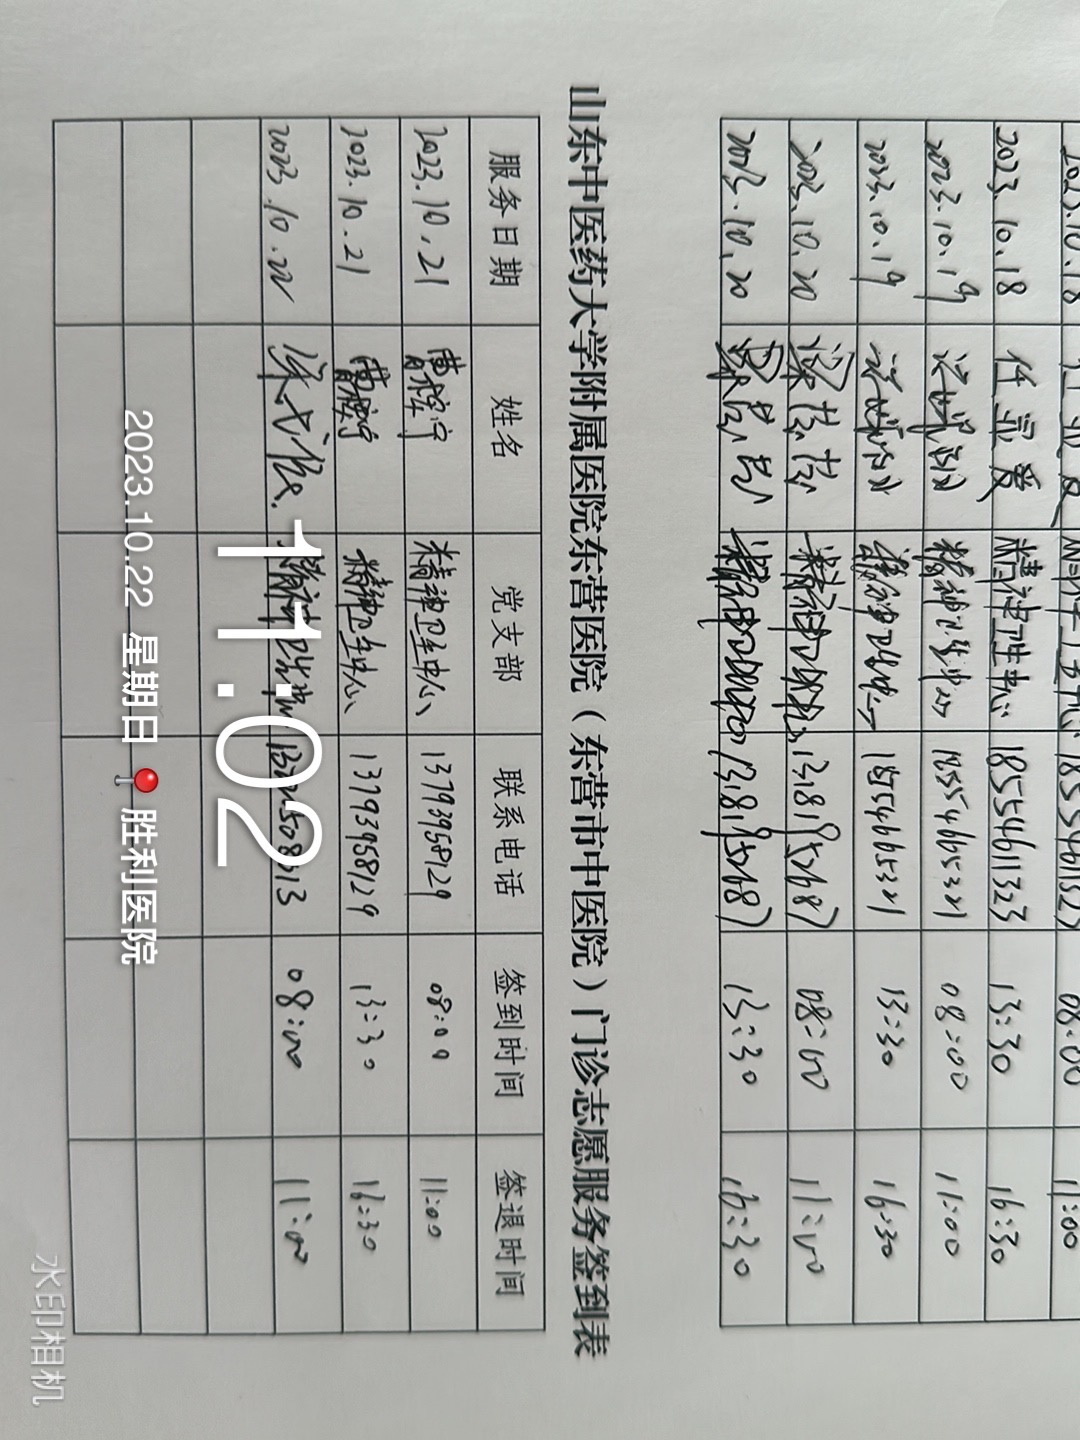 2023.10.18 08:00 11:00
2023.10.18 任宝爱 精神卫生中心 18554611323 13:30 16:30
2023.10.19 精神卫生中心 18554665321 08:00 11:00
2023.10.19 精神卫生中心 18554665321 13:30 16:30
2023.10.20 08:00 11:00
2023.10.20 13:30 16:30
山东中医药大学附属医院东营医院（东营市中医院）门诊志愿服务签到表
服务日期 姓名 党支部 联系电话 签到时间 签退时间
2023.10.21 精神卫生中心 13793958129 08:00 11:00
2023.10.21 精神卫生中心 13793958129 13:30 16:30
2023.10.22 08:00 11:00
11:02
2023.10.22 星期日 胜利医院
水印相机